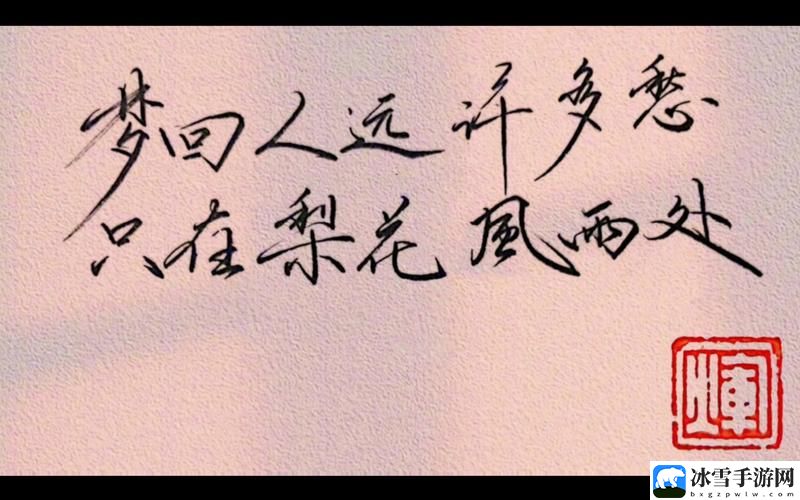 梦回人远许多愁
只在梨花風雨处
輝
冰雪手游网
bxgzpwlw.com